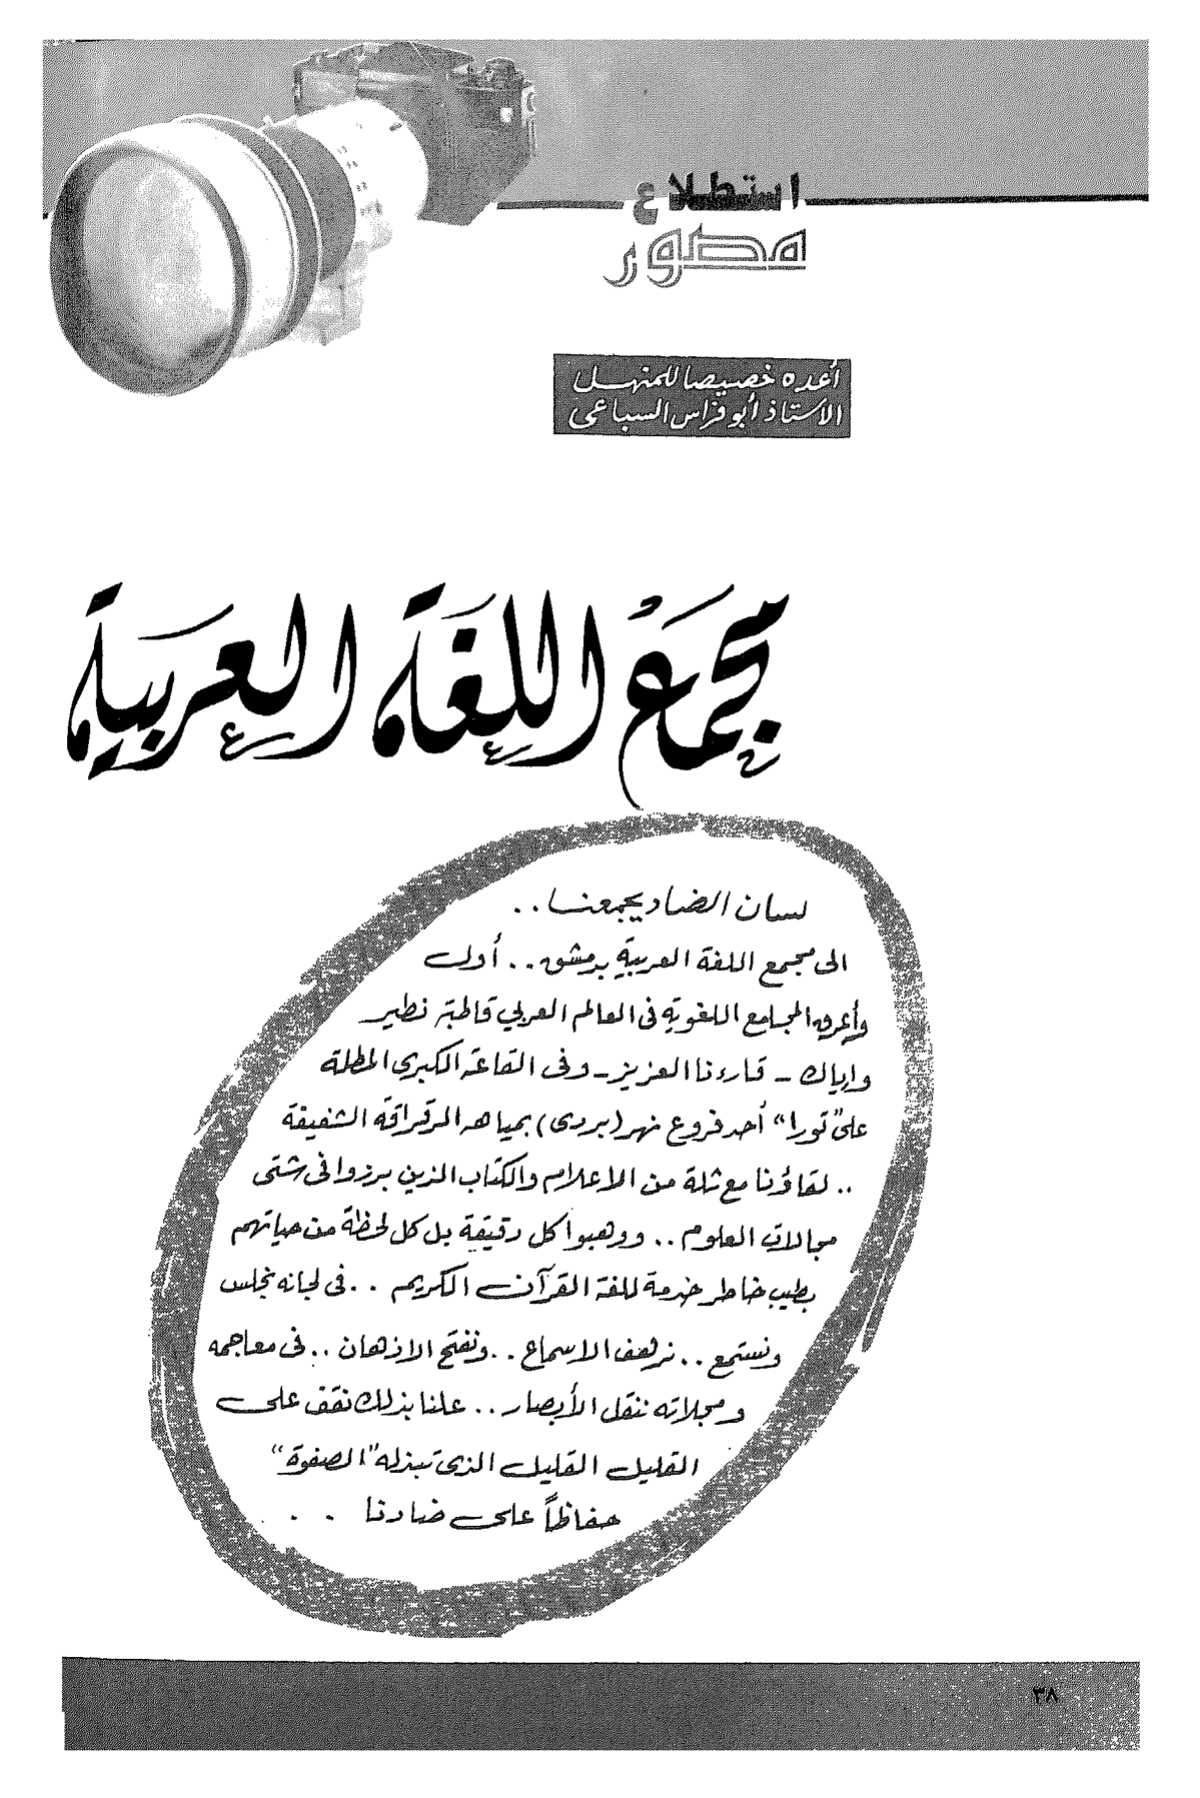 استطلاع
مصور
أعده خصيصا للمنهل
الاستاذ أبو فراس السباعى
مجمع اللغة العربية
لسان الضاد يجمعنا . .
الى مجمع اللغة العربية بدمشق . . أول
وأعرق المجامع اللغوية فى العالم العربي قاطبة نطير
واياك - قارءنا العزيز - وفى القاعة الكبرى المطلة
على "تورا" أحد فروع نهر (بردى) بمياهه الرقراقة الشفيفة
. . لقاؤنا مع ثلة من الاعلام والكتاب الذين برزوا فى شتى
مجالات العلوم . . ووهبوا كل دقيقة بل كل لحظة من حياتهم
بطيب خاطر خدمة للغة القرآن الكريم . . فى لجانه نجلس
ونستمع . . نرهف الاسماع . . ونفتح الاذهان . . فى معاجمه
ومجلاته ننقل الأبصار . . علنا بذلك نقف على
القليل القليل الذى تبذله "الصفوة"
حفاظاً على ضادنا . . .
٣٨